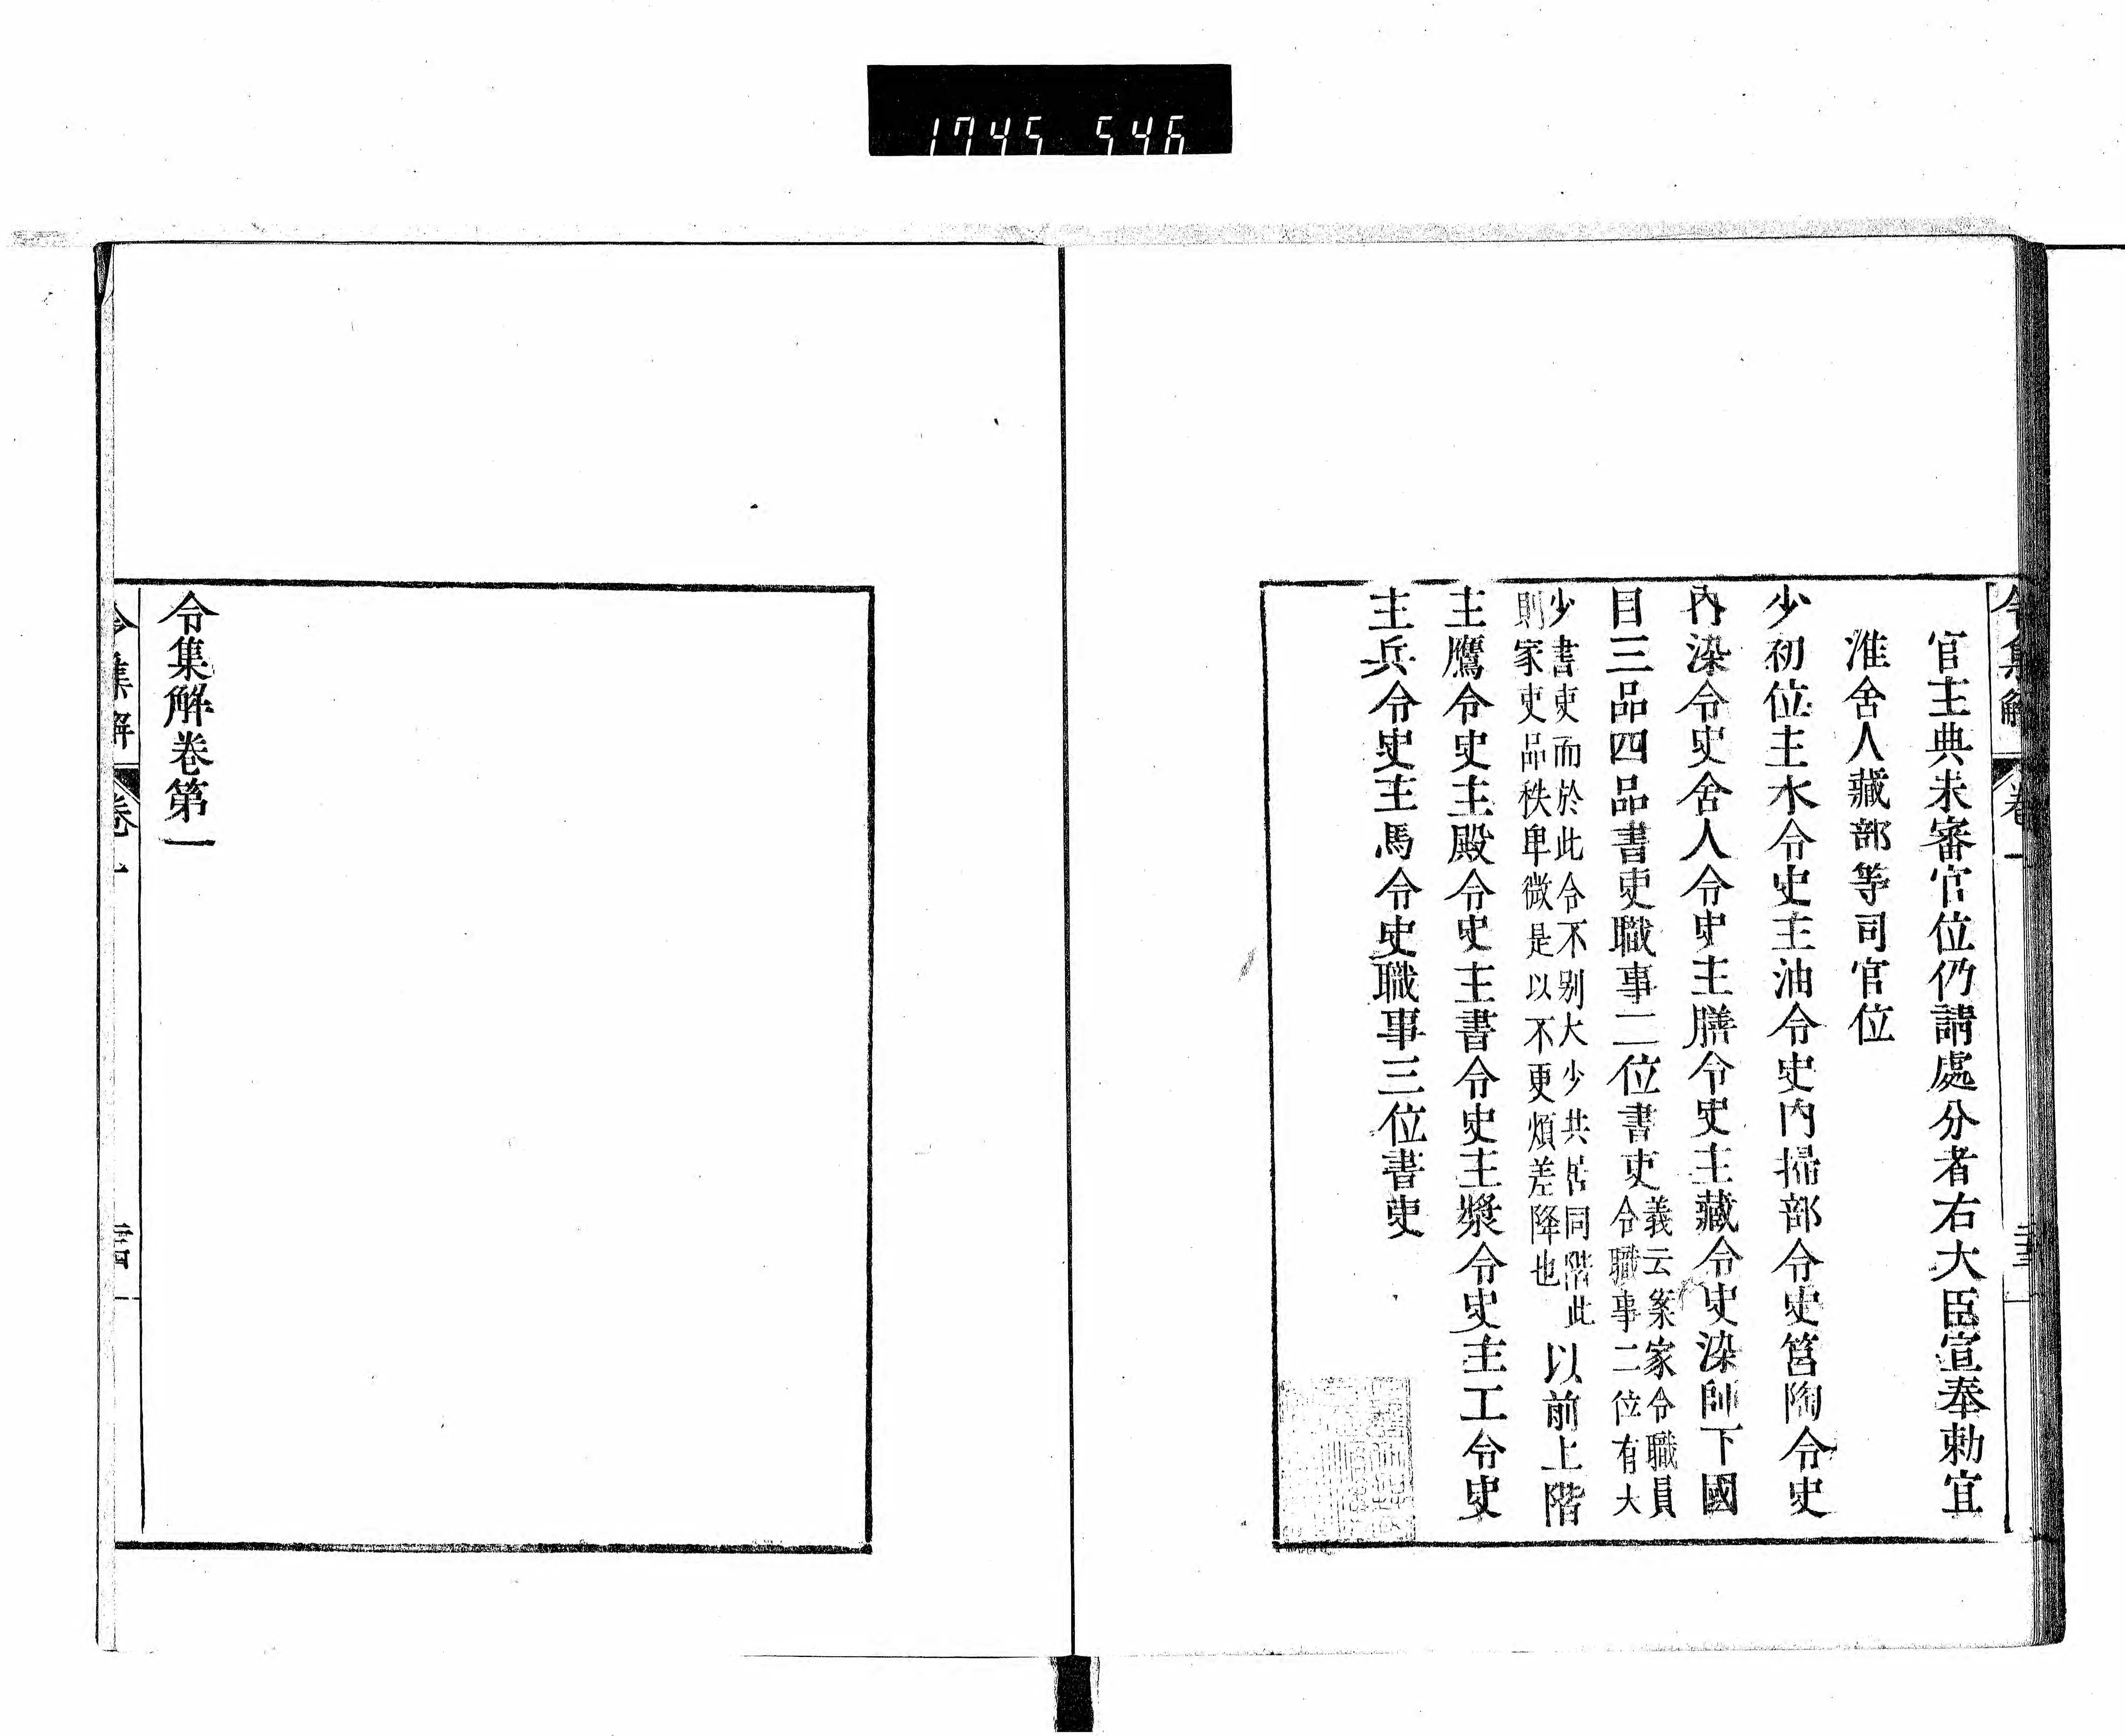 1745 546
令集解 卷一
官主典未審官位仍請處分者右大臣宣奉勅宜
准舍人藏部等司官位
少初位主水令史主油令史內掃部令史筥陶令史
內染令史舍人令史主膳令史主藏令史染師下國
目三品四品書吏職事二位書吏義云案家令職員
令職事二位有大
少書吏而於此令不別大少共居同階此
則家吏品秩卑微是以不更煩差降也以前上階
主鷹令史主殿令史主書令史主漿令史主工令史
主兵令史主馬令史職事三位書吏
令集解卷第一
令集解 卷一